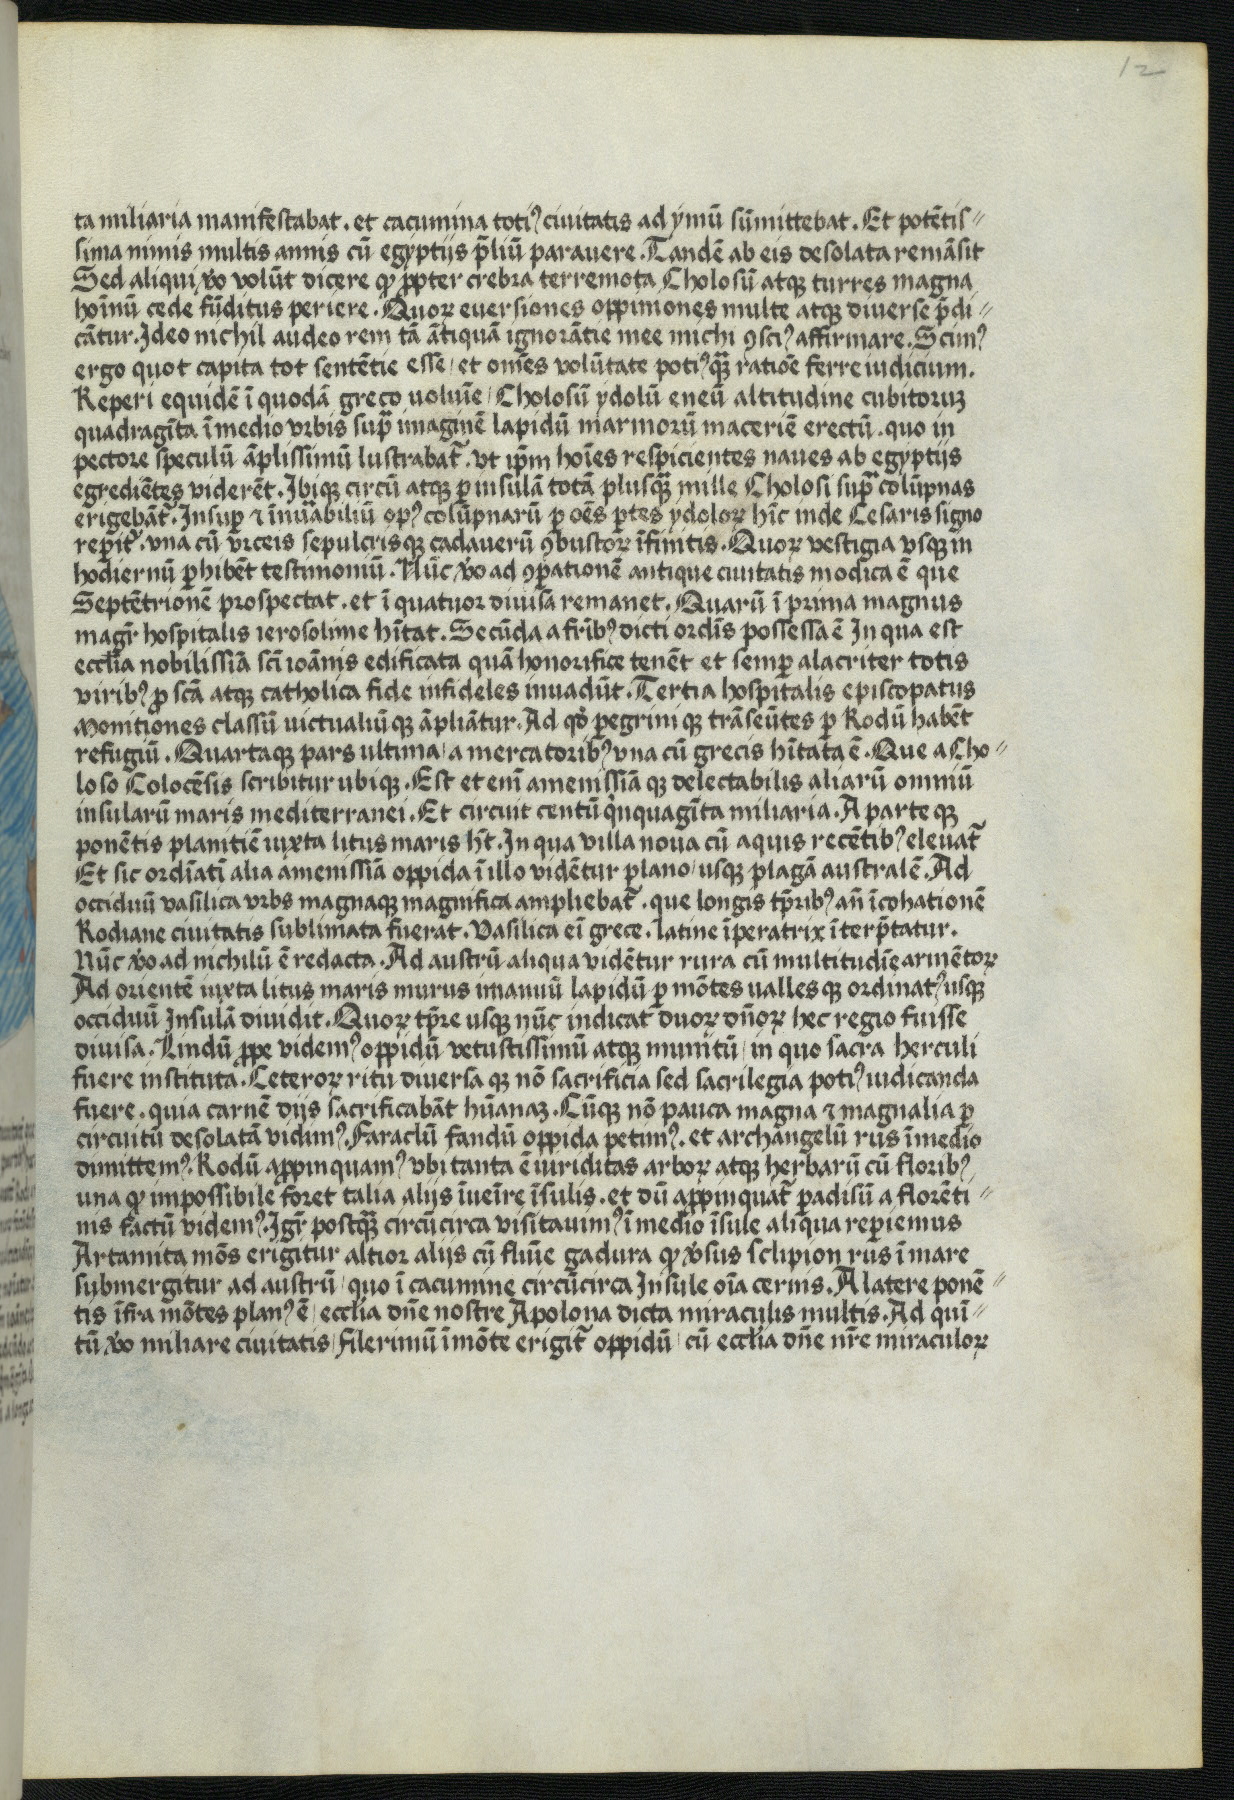 12
ta miliaria manifestabat . et cacumina totiꝰ ciuitatis ad ymū sūmittebat . Et potētis〃
sima nimis multis annis cū egyptijs p̄liū parauere . Tandē ab eis desolata remāsit
Sed aliqui ṽo volūt dicere ꝙ ꝓpter crebra terremota Cholosū atqꝫ turres magna
hoı̄nū cede fūditus periere . Quoꝝ euersiones oppiniones multe atqꝫ diuerse p̄di〃
cātur . Ideo nichil audeo rem tā ātiquā ignorātie mee michi ꝯsciꝰ affirmare . Scimꝰ
ergo quot capita tot sentētie esse / et om̄es volūtate potiꝰ qꝫ̄ ratiōe ferre iudicium .
Reperi equidē ī quodā greco uoluīe / Cholosū ydolū eneū altitudine cubitoruꝫ
quadragīta ī medio vrbis sup̄ imaginē lapidū marmorū maceriē erectū . quo in
pectore speculū āplissimū lustrabat᷑ . vt ip̄m hoı̄es respicientes naues ab egyptijs
egrediētes viderēt . Ibiqꝫ circū atqꝫ ꝑ insulā totā plusqꝫ̄ mille Cholosi sup̄ colūpnas
erigebāt᷑ . Insuꝑ ⁊ īnūabiliū opꝰ colūpnarū ꝑ oēs ꝑtes ydoloꝝ hīc inde Cesaris signo
reꝑit᷑ . vna cū vrceis sepulcrisqꝫ cadauerū ꝯbustoꝝ īfinitis . Quoꝝ vestigia vsqꝫ in
hodiernū ꝑhibēt testimoniū . Nūc ṽo ad ꝯꝑationē antique ciuitatis modica ē que
Septētrionē prospectat . et ī quatuor diuisa remanet . Quarū ī prima magnus
magr̄ hospitalis ierosolime hı̄tat . Secūda a fr̄ibꝰ dicti ordı̄s possessa ē In qua est
eccl̄ia nobilissiā sc̄i ioānis edificata quā honorifice tenēt et semꝑ alacriter totis
viribꝰ ꝓ sc̄a atqꝫ catholica fide infideles inuadūt . Tertia hospitalis episcopatus
monitiones classū uictualiūqꝫ āpliātur . Ad qđ ꝑegriniqꝫ trāseūtes ꝑ Rodū habēt
refugiū . Quartaqꝫ pars ultima / a mercatoribꝰ vna cū grecis hı̄tata ē . Que a Cho〃
loso Colocēsis scribitur ubiqꝫ . Est et eni᷑ amenissiā qꝫ delectabilis aliarū omniū
insularū maris mediterranei . Et circuit centū qinquagīta miliaria . A parte qꝫ
ponētis planitiē iuxta litus maris hı̄t . In qua villa noua cū aquis recētibꝰ eleuat᷑
Et sic ordı̄ati᷑ alia amenissiā oppida ī illo vidētur plano / usqꝫ plagā australē . Ad
occiduū vasilica vrbs magnaqꝫ magnifica ampliebat᷑ . que longis tp̄ribꝰ an̄ īcohationē
Rodiane ciuitatis sublimata fuerat . Vasilica ei᷑ grece . latine īperatrix īterp̄tatur .
Nūc ṽo ad nichilū ē redacta . Ad austrū aliqua vidētur rura cū multitudı̄e armētoꝝ
Ad orientē iuxta litus maris murus imanuū lapidū ꝑ mōtes uallesqꝫ ordinatꝰ usqꝫ
occiduū Insulā diuidit . Quoꝝ tp̄re usqꝫ nūc indicat duoꝝ dn̄oꝝ hec regio fuisse
diuisa . Lindū ꝓpe videmꝰ oppidū vetustissimū atqꝫ munitū / in quo sacra herculi
fuere instituta . Ceteroꝝ ritu diuersa qꝫ nō sacrificia sed sacrilegia potiꝰ iudicanda
fuere . quia carnē dijs sacrificabāt hūanaꝫ . Cūqꝫ nō pauca magna ⁊ magnalia ꝑ
circuitū desolatā vidimꝰ . Faraclū fandū oppida petimꝰ . et archangelū rus ī medio
dimittemꝰ . Rodū aꝓpinquamꝰ vbi tanta ē uiriditas arboꝝ atqꝫ herbarū cū floribꝰ
una ꝙ impossibile foret talia alijs īueı̄re īsulis . et dū aꝓpinquat᷑ ꝑadisū a florēti〃
nis factū videmꝰ . Igr̄ postqꝫ̄ circūcirca visitauimꝰ ī medio īsule aliqua reꝑiemus
Artamita mōs erigitur altior alijs cū fluı̄e gadura ꝙ ṽsus sclipion rus ī mare
submergitur ad austrū / quo ī cacumine circūcirca Insule oı̄a cernis . A latere ponē〃
tis īfra mōtes planꝰ ē / eccl̄ia dn̄e nostre Apolona dicta miraculis multis . Ad quī〃
tū ṽo miliare ciuitatis / filerimū ī mōte erigit᷑ oppidū / cū eccl̄ia dn̄e nr̄e miraculoꝝ